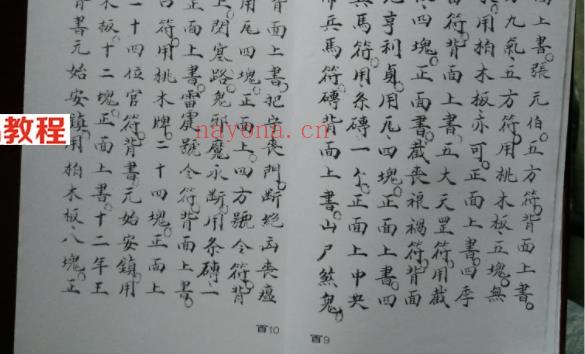 面上書。張元伯。五方符。背面上書。
方九氣。五方符。用桃木板五塊。無
用柏木板亦可。正面上書。四季
符。背面上書。五大天罡符。用截
四塊。正面書。截喪禍符。背面
亨利貞。用瓦四塊。正面上書。四
兵馬符。用条磚一个。正面上中央
帝兵馬符。磚背面上書。山尸煞鬼。
百9
背面上書。把守喪門。斷絕凶喪瘟
用瓦四塊。正面上。四方號令符。背
上。閉塞路鬼。邪魔永斷。用条磚一
正面上書。雷霆號令符。背面上書。
符。用桃木牌。二十四塊。正面上
二十四位官符。背書元始安鎮。用
木板十二塊。正面上書。十二年王
背書元始安鎮。用柏木板。八塊。正
百10
教程
nayona.cn